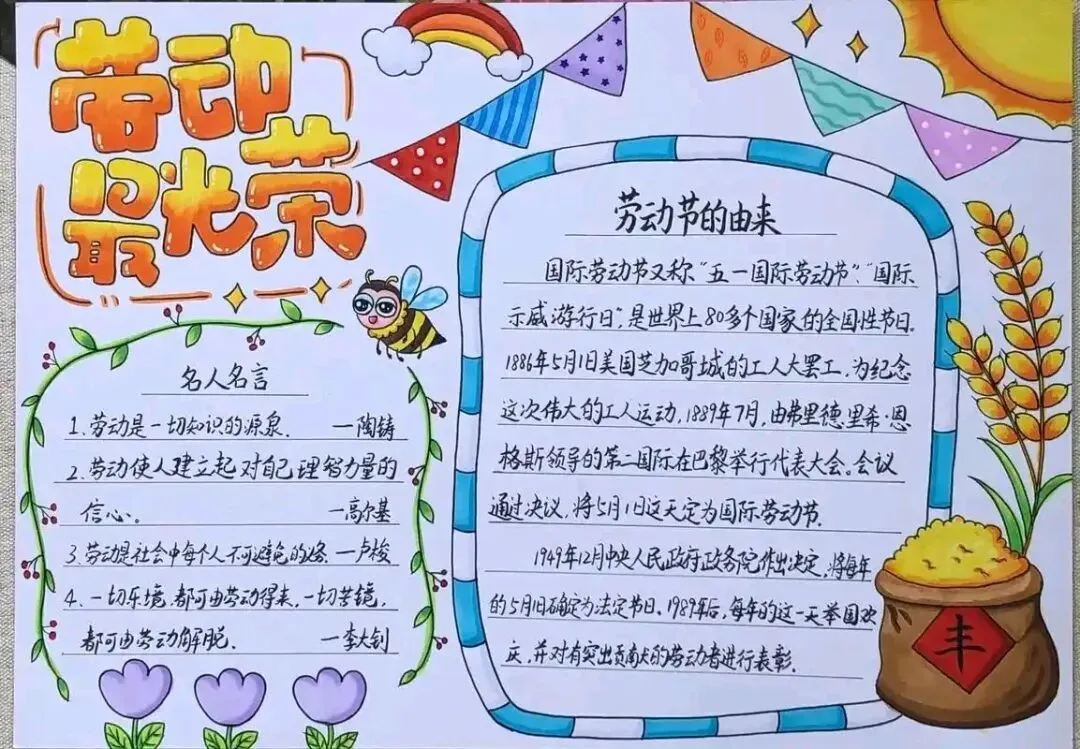 劳动
最光荣
名人名言
1.劳动是一切知识的源泉. —陶铸
2.劳动使人建立起对自己理智力量的
信心。 —高尔基
3.劳动是社会中每个人不可避免的 —卢梭
4.一切乐境,都可由劳动得来,一切苦镜,
都可由劳动解脱. —李大钊
劳动节的由来
国际劳动节又称"五一国际劳动节"、"国际
示威游行日",是世界上80多个国家的全国性节日.
1886年5月1日美国芝加哥城的工人大罢工,为纪念
这次伟大的工人运动,1889年7月,由弗里德里希·恩
格斯领导的第二国际在巴黎举行代表大会。会议
通过决议,将5月1日这天定为国际劳动节.
1949年12月中央人民政府政务院作出决定,将每年
的5月1日确定为法定节日.1989年后,每年的这一天举国欢
庆,并对有突出贡献的劳动者进行表彰.
丰